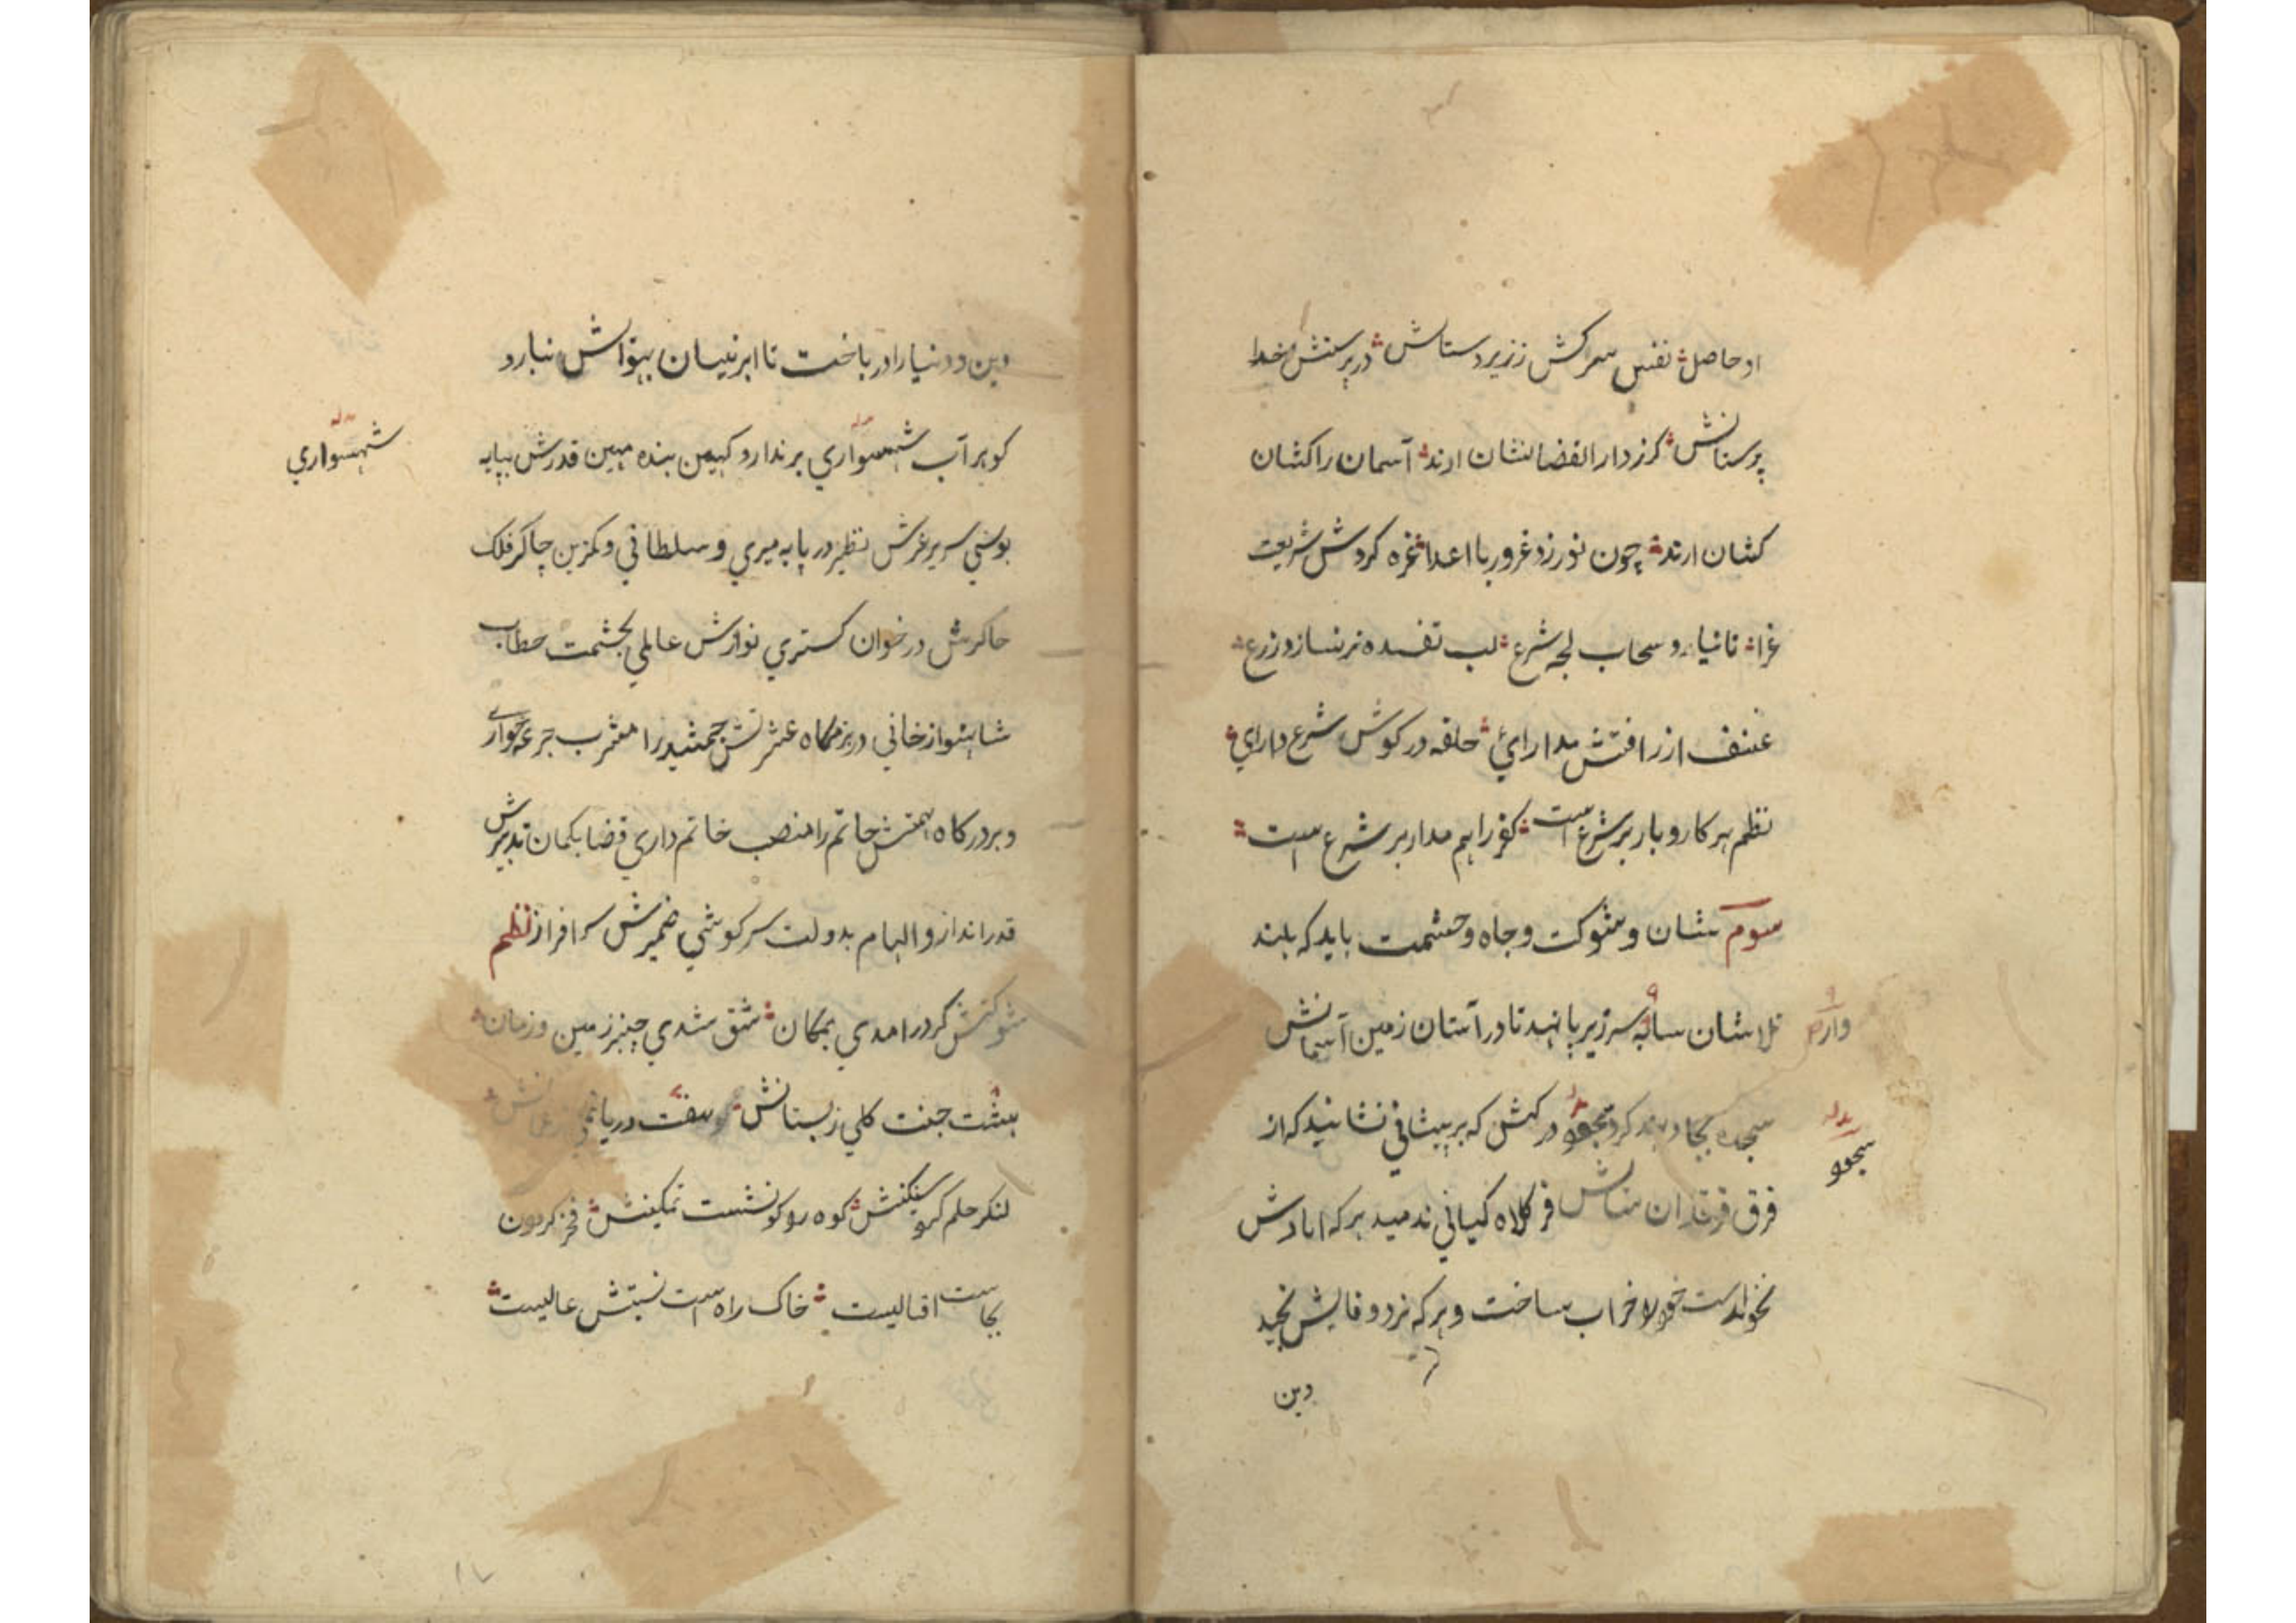 او حاصل نفس سرکش ززیردستانش در پرستش خدا
پرستانش کرز دار القضا نشان ارند آسمان را کشان
کشان ارند چون نورزد غرور با اعدا غره کردش شریعت
غرا تا نیارد سحاب لجه شرع لب تفسده تر نسازد زرع
عنف از رافتش مدارای حلقه در کوش شرع دارای
نظم هر کار و بار بر شرع است کفر را هم مدار بر شرع است
سوم شان و شوکت و جاه و حشمت باید که بلند
تلاشان سایه سر زیر پا نهند تا در آستان زمین آسمانش
وارد
سجده بجا دهند کرد در کهش که بر پیشانی نشانید که از
سجود
فرق فرقدان فر کلاه کیانی ندمید هرکه ابادش
نخواست خود را خراب ساخت و هرکه نرد وفایش نچید
دین
دین و دنیا را درباخت تا ابر نیسان بهوایش نبارد
کوهر آب شهسواری بر ندارد کهین بنده مبین قدرش بپایه
شهسواری
بوسی سریر عرش نظیر در پایه میری و سلطانی و کمترین چاکر فلک
چاکرش در خوان کستری نوازش عاملی بحشمت خطاب
شاهنواز خانی در بزمکاه عشرتش جمشید را مشرب جرعه خواری
و بر درکاه همتش حاتم را منصب خاتم داری قضا بکمان تدبیرش
قدر انداز و الهام بدولت سرکوشی ضمیرش سرافراز نظم
شوکتش کر درامدی بمکان شق شدی چنبر زمین و زمان
هشت جنت کلی زبستانش هفت دریا نمی
لنکر حلم کوه سنکینش کوه رو کو نشست تمکینش فخر کردون
بجاست اقبالیست خاک راه است نسبتش عالیست